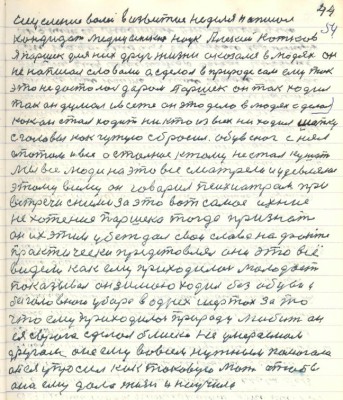 44
54
силы воли в развитие неделя написал
кандидат медицинских наук Алексей Катков
я Паршек для них друг жизни оказал в людях он
не написал словами а сделал в природе сам ему так
это не досталось даром Паршек он так ходил
так он думал и всё это он это дело в людях сделал
как он стал ходить никто из них не ходил шапку
с головы как чужую сбросил обувь с ног снял
а потом и все остальное к тому не стал кушать
мы все люди на это все смотрели и удивлялись
этому всему он говорил психиатрам при
встречи с ними за это вот самое ихнее
не хотение Паршека тогда признать
он их этим убеждал свои слова на факте
практически представлял они это всё
видели как ему приходилось молодость
показывал он зимою ходил без обуви и
без головного убора в одних шортах за то
что ему приходилось природу любить он
её врага сделал близко не умираемым
другом она ему во всем нужным помогала
он её упросил как таковую мать чтобы
она ему дала жизнь и научила